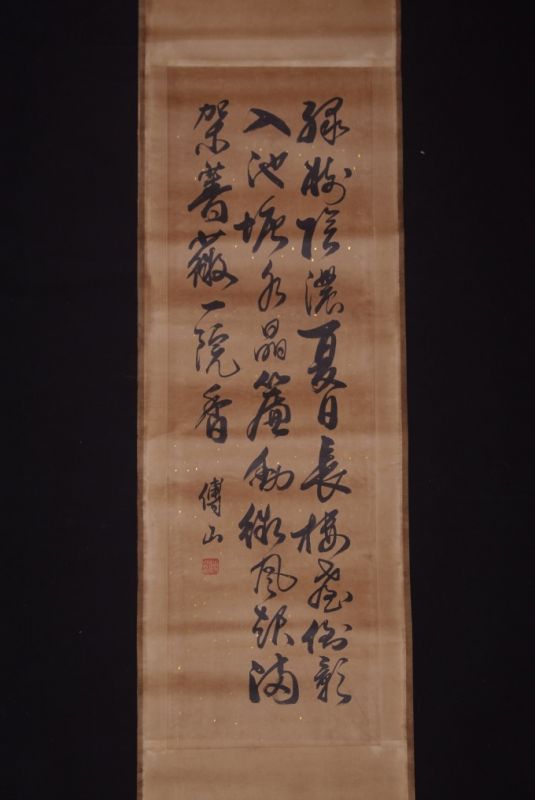 綠樹陰濃夏日長樓臺倒影
入池塘水晶簾動微風起滿
架薔薇一院香
傅山